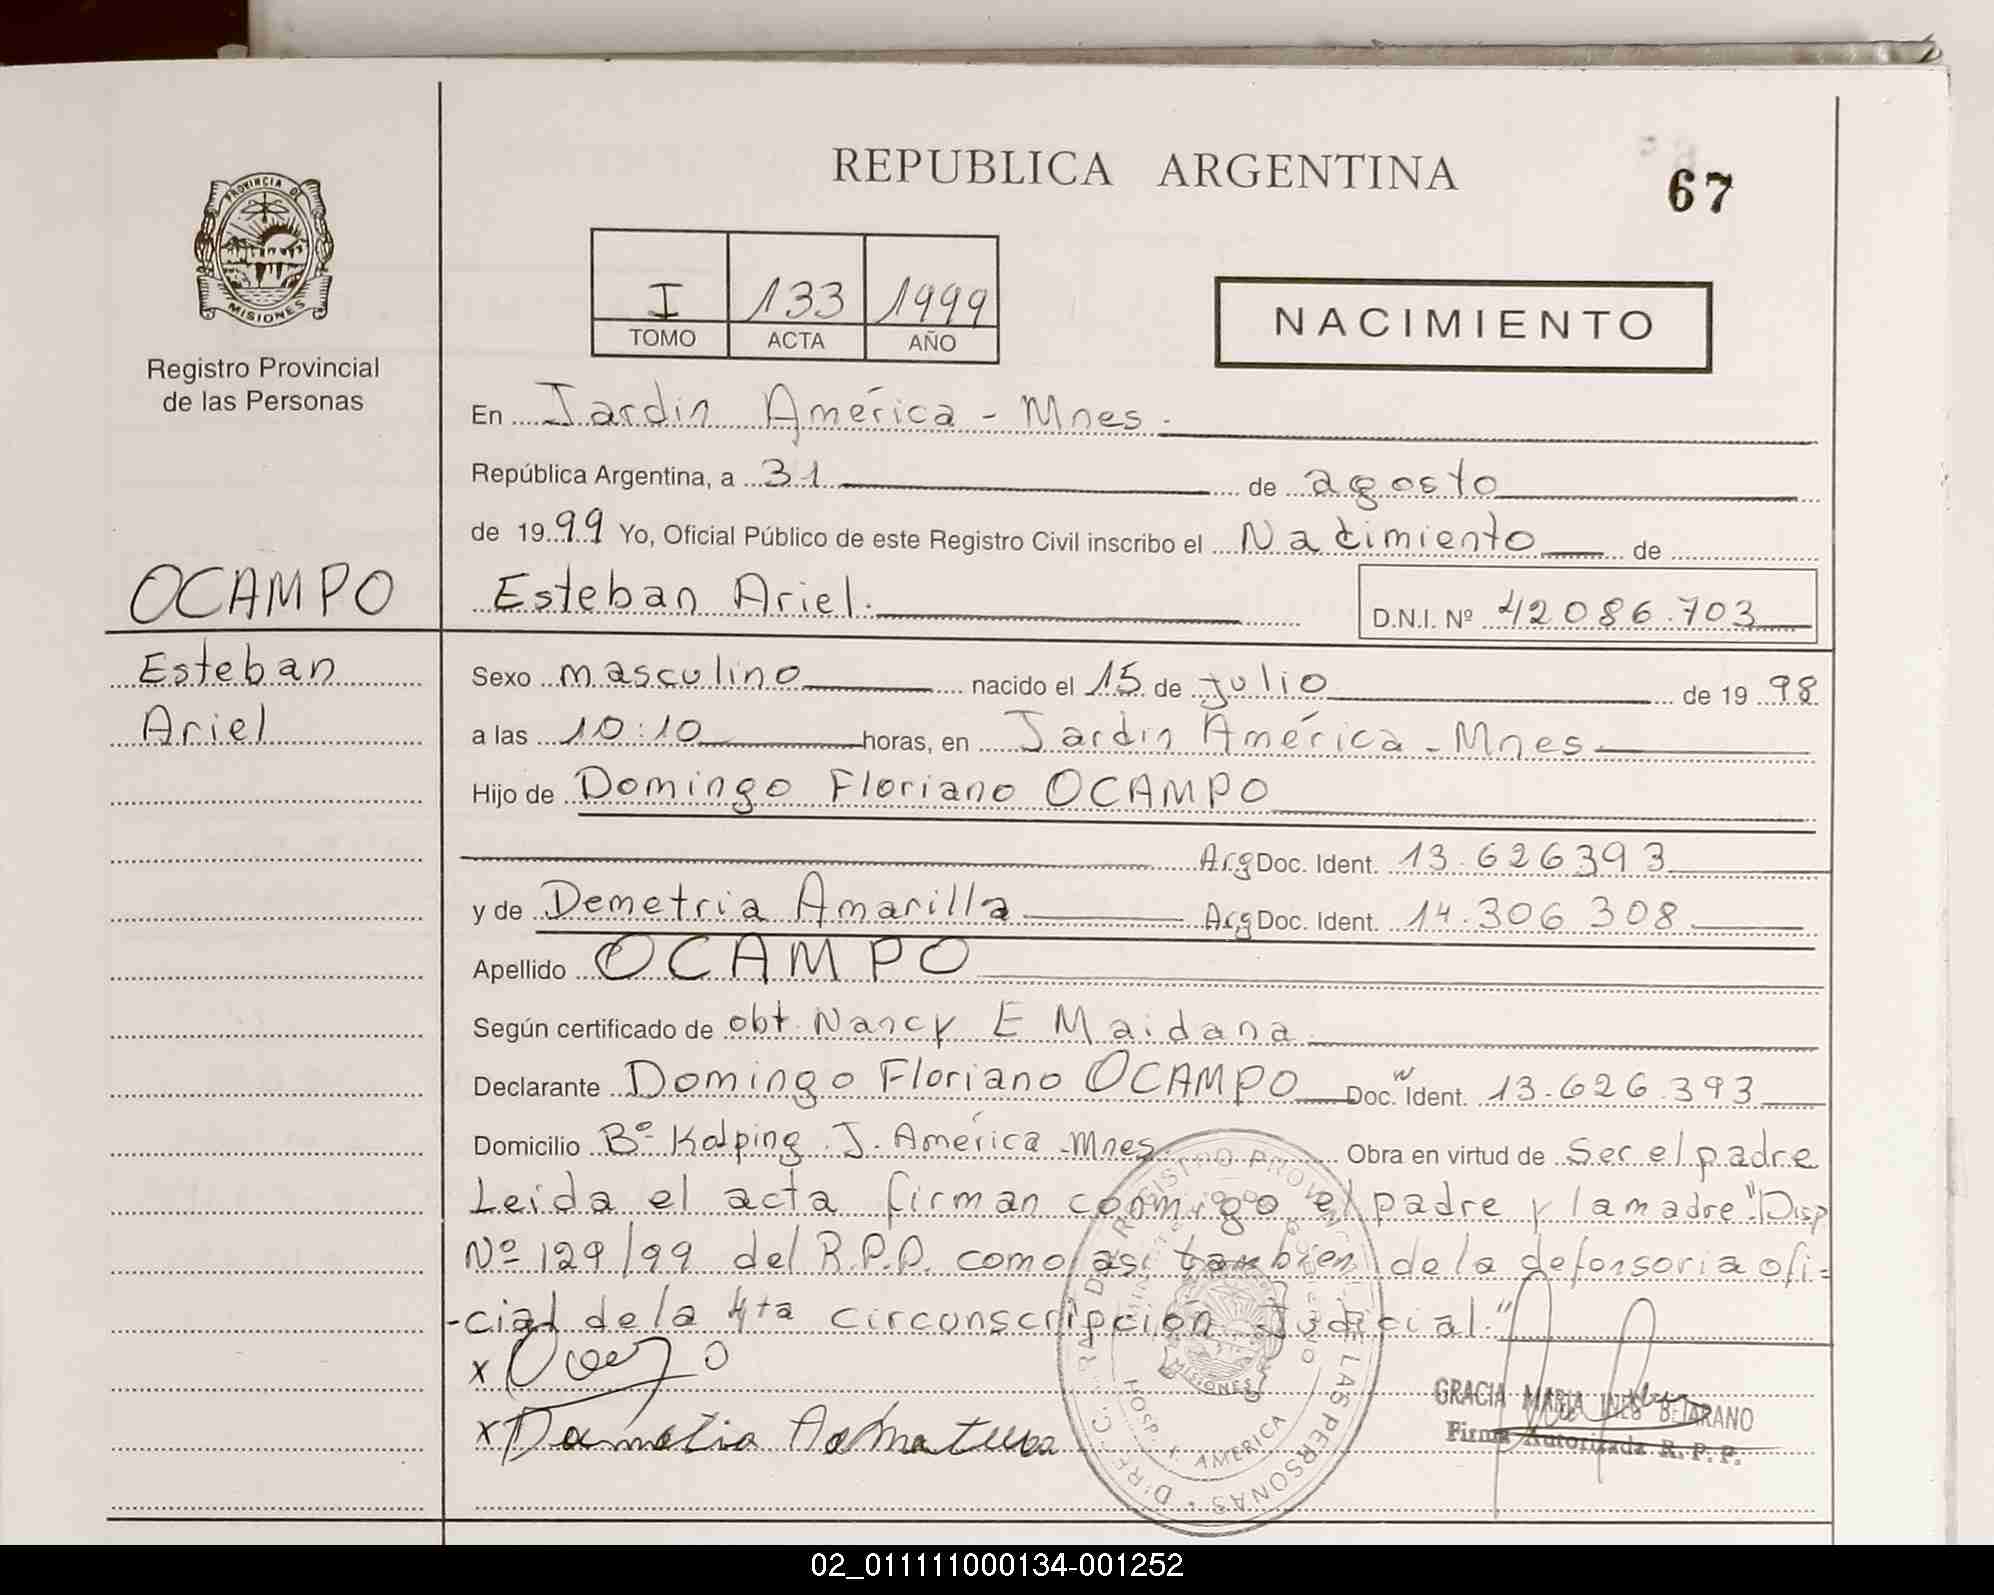 REPUBLICA ARGENTINA
67
PROVINCIA DE
MISIONES
Registro Provincial
de las Personas
I 133 1999
TOMO ACTA AÑO
NACIMIENTO
En Jardin América - Mnes.
República Argentina, a 31 de agosto
de 1999 Yo, Oficial Público de este Registro Civil inscribo el Nacimiento de
OCAMPO
Esteban Ariel.
D.N.I. Nº 42086.703
Esteban
Ariel
Sexo masculino nacido el 15 de julio de 1998
a las 10:10 horas, en Jardin América - Mnes
Hijo de Domingo Floriano OCAMPO
Arg Doc. Ident. 13.626393
y de Demetria Amarilla Arg Doc. Ident. 14.306 308
Apellido OCAMPO
Según certificado de obt. Nancy E Maidana
Declarante Domingo Floriano OCAMPO Doc. Ident. 13.626.393
Domicilio Bº Kolping. J. América - Mnes Obra en virtud de Ser el padre
Leida el acta firman conmigo el padre y la madre "Disp
Nº 129/99 del R.P.P. como asi tambien de la defensoria ofi=
-cial de la 4ta circunscripción Judicial."
x
x
GRACIA MARIA INES BEJARANO
Firma Autorizada R. P. P.
MISIONES
HOSP. J. AMERICA
02_011111000134-001252